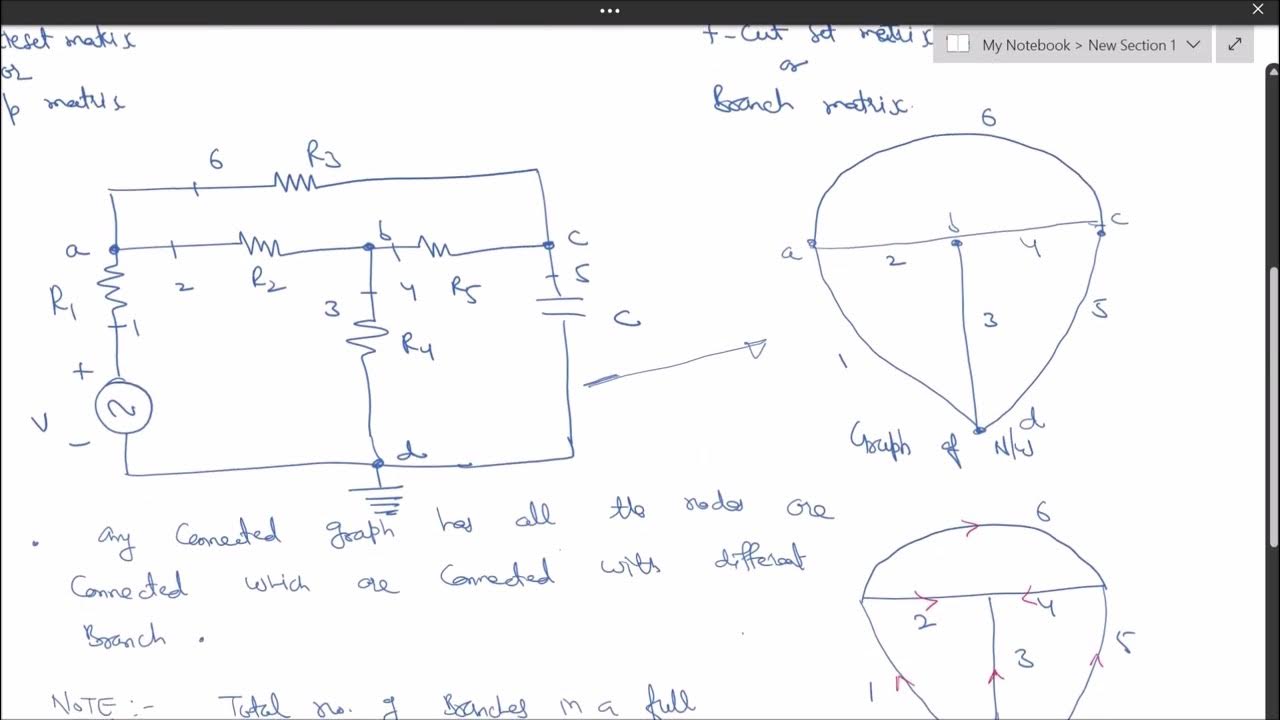 •••
My Notebook > New Section 1
reset matrix
or
p matrix
f-Cut set matrix
or
Branch matrix.
6
R3
a
2
R2
b
4
R5
c
5
C
R1
1
3
R4
+
V
-
d
6
a
2
b
4
c
1
3
5
d
Graph of N/W
• any Connected graph has all the nodes are
Connected which are Connected with different
Branch.
6
2
4
1
3
5
NOTE :- Total no. of Branches in a full